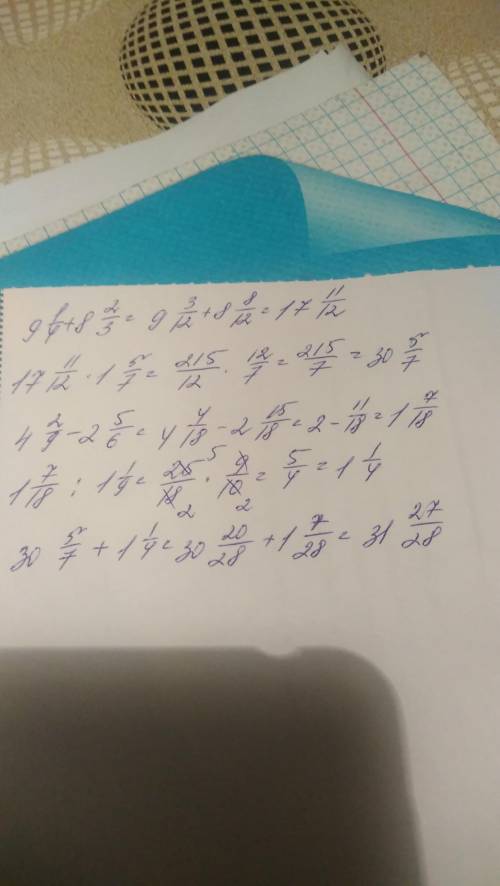 9 1/4 + 8 2/3 = 9 3/12 + 8 8/12 = 17 11/12
17 11/12 · 1 5/7 = 215/12 · 12/7 = 215/7 = 30 5/7
4 2/9 - 2 5/6 = 4 4/18 - 2 15/18 = 2 - 11/18 = 1 7/18
1 7/18 : 1 1/9 = 25 5/18 2 · 9/10 2 = 5/4 = 1 1/4
30 5/7 + 1 1/4 = 30 20/28 + 1 7/28 = 31 27/28